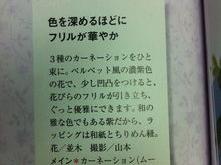 色を深めるほどに
フリルが華やか
３種のカーネーションをひと
束に。ベルベット風の濃紫色
の花で、少し凹凸をつけると、
花びらのフリルが引き立ち、
ぐっと優雅にできます。和の
雅な色でもある紫だから、ラ
ッピングは和紙とちりめん紐。
花／並木　撮影／山本
メイン＊カーネーション(ムー